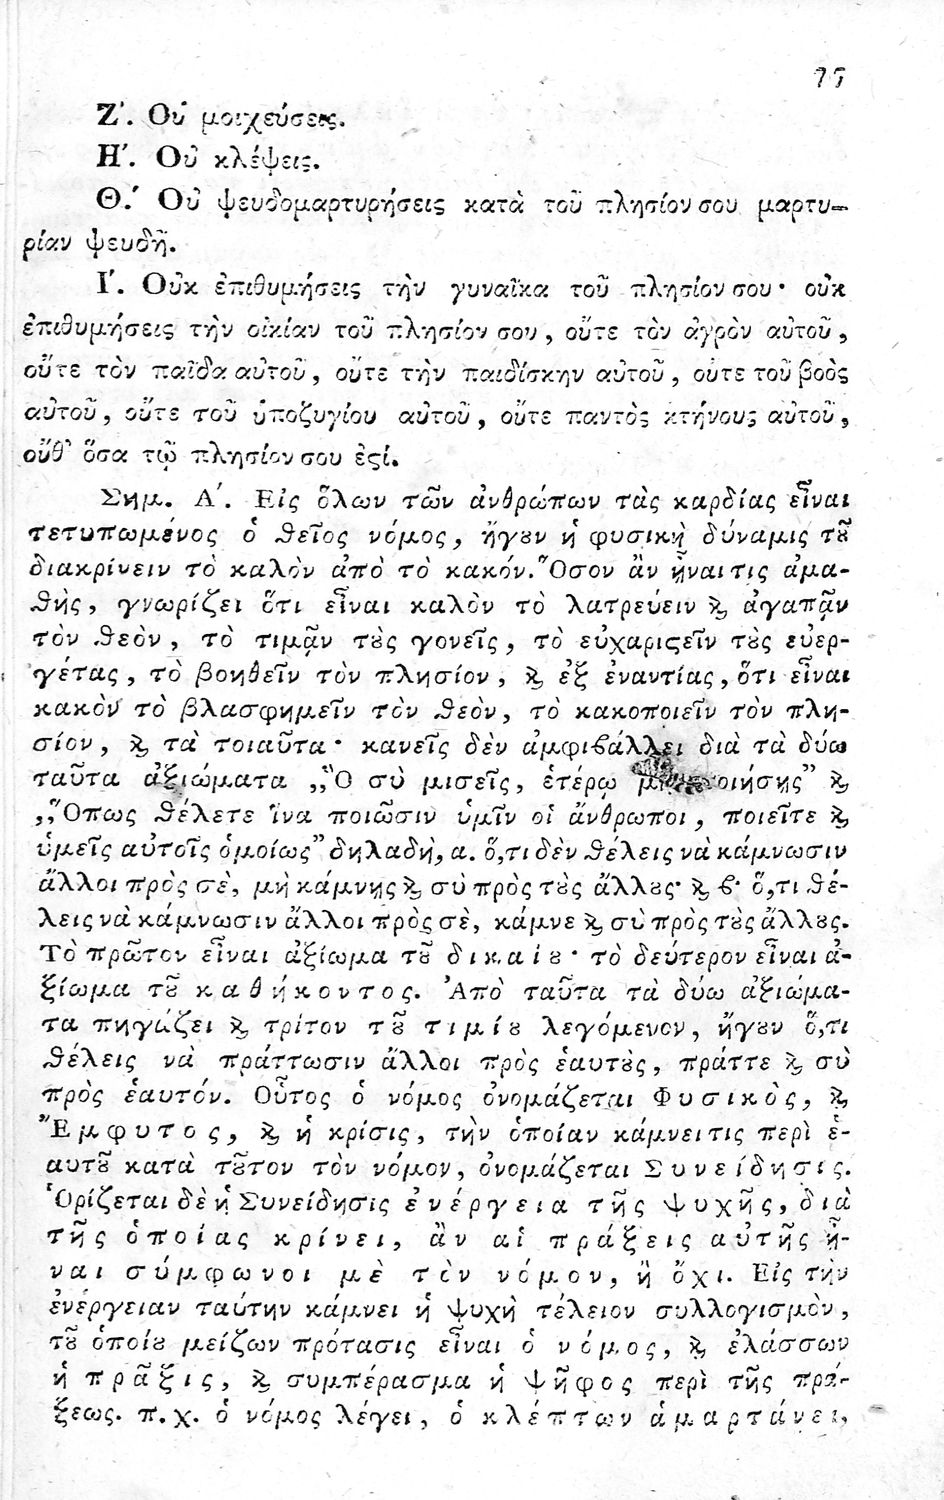 75
Ζʹ. Οὐ μοιχεύσεις.
Ηʹ. Οὐ κλέψεις.
Θ.ʹ Οὐ ψευδομαρτυρήσεις κατὰ τοῦ πλησίον σου μαρτυ-
ρίαν ψευδῆ.
Ιʹ. Οὐκ ἐπιθυμήσεις τὴν γυναῖκα τοῦ πλησίον σου· οὐκ
ἐπιθυμήσεις τὴν οἰκίαν τοῦ πλησίον σου, οὔτε τὸν ἀγρὸν αὐτοῦ,
οὔτε τὸν παῖδα αὐτοῦ, οὔτε τὴν παιδίσκην αὐτοῦ, οὔτε τοῦ βοὸς
αὐτοῦ, οὔτε τοῦ ὑποζυγίου αὐτοῦ, οὔτε παντὸς κτήνους αὐτοῦ,
οὔθ' ὅσα τῷ πλησίον σου ἐϛί.
Σημ. Αʹ. Εἰς ὅλων τῶν ἀνθρώπων τὰς καρδίας εἶναι
τετυπωμένος ὁ ϑεῖος νόμος, ἤγȣν ἡ φυσικὴ δύναμις τȣ͂
διακρίνειν τὸ καλὸν ἀπὸ τὸ κακόν. Ὅσον ἂν ἦναι τις ἀμα-
ϑὴς, γνωρίζει ὅτι εἶναι καλὸν τὸ λατρεύειν ϗ ἀγαπᾷν
τὸν ϑεὸν, τὸ τιμᾷν τȣ̀ς γονεῖς, τὸ εὐχαριϛεῖν τȣ̀ς εὐερ-
γέτας, τὸ βοηθεῖν τὸν πλησίον, ϗ ἐξ ἐναντίας, ὅτι εἶναι
κακὸν τὸ βλασφημεῖν τὸν ϑεὸν, τὸ κακοποιεῖν τὸν πλη-
σίον, ϗ τὰ τοιαῦτα· κανεῖς δὲν ἀμφιϐάλλει διὰ τὰ δύω
ταῦτα ἀξιώματα „Ὃ σὺ μισεῖς, ἑτέρῳ μὴ ποιήσῃς” ϗ
„Ὅπως ϑέλετε ἵνα ποιῶσιν ὑμῖν οἱ ἄνθρωποι, ποιεῖτε ϗ
ὑμεῖς αὐτοῖς ὁμοίως” δηλαδὴ, α. ὅ,τι δὲν ϑέλεις νὰ κάμνωσιν
ἄλλοι πρὸς σὲ, μὴ κάμνῃς ϗ σὺ πρὸς τȣ̀ς ἄλλȣς· ϗ ϐ· ὅ,τι ϑέ-
λεις νὰ κάμνωσιν ἄλλοι πρὸς σὲ, κάμνε ϗ σὺ πρὸς τȣ̀ς ἄλλȣς.
Τὸ πρῶτον εἶναι ἀξίωμα τȣ͂ δικαίȣ· τὸ δεύτερον εἶναι ἀ-
ξίωμα τȣ͂ καθήκοντος. Ἀπὸ ταῦτα τὰ δύω ἀξιώμα-
τα πηγάζει ϗ τρίτον τȣ͂ τιμίȣ λεγόμενον, ἤγȣν ὅ,τι
ϑέλεις νὰ πράττωσιν ἄλλοι πρὸς ἑαυτȣ̀ς, πράττε ϗ σὺ
πρὸς ἑαυτόν. Οὗτος ὁ νόμος ὀνομάζεται Φυσικὸς, ϗ
Ἔμφυτος, ϗ ἡ κρίσις, τὴν ὁποίαν κάμνει τις περὶ ἑ-
αυτȣ͂ κατὰ τȣ͂τον τὸν νόμον, ὀνομάζεται Συνείδησις.
Ὁρίζεται δὲ ἡ Συνείδησις ἐνέργεια τῆς ψυχῆς, διὰ
τῆς ὁποίας κρίνει, ἂν αἱ πράξεις αὐτῆς ἦ-
ναι σύμφωνοι μὲ τὸν νόμον, ἢ ὄχι. Εἰς τὴν
ἐνέργειαν ταύτην κάμνει ἡ ψυχὴ τέλειον συλλογισμὸν,
τȣ͂ ὁποίȣ μείζων πρότασις εἶναι ὁ νόμος, ϗ ἐλάσσων
ἡ πρᾶξις, ϗ συμπέρασμα ἡ ψῆφος περὶ τῆς πρά-
ξεως. π.χ. ὁ νόμος λέγει, ὁ κλέπτων ἁμαρτάνει,